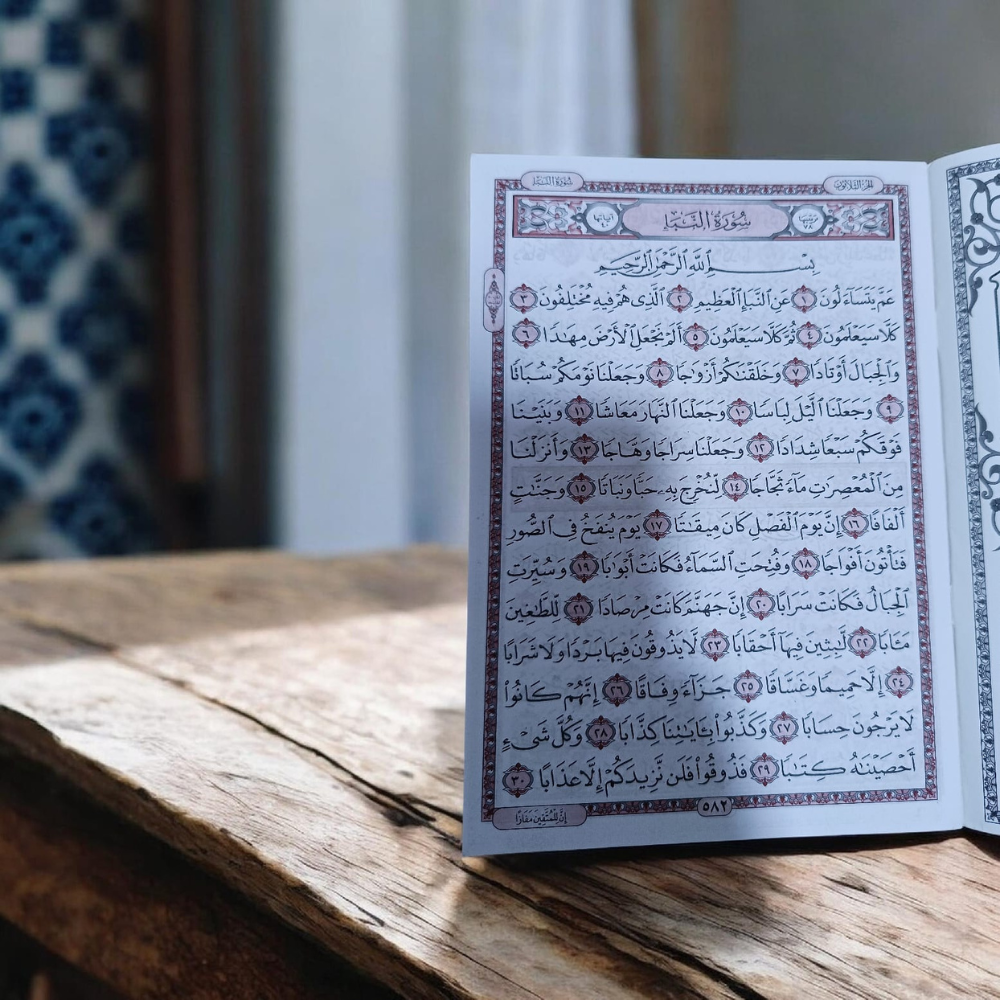 الجزء الثلاثون
سورة النبإ
ترتيبها ٧٨
سُورَةُ النَّبَإِ
آياتها ٤٠
بِسْمِ ٱللَّهِ ٱلرَّحْمَٰنِ ٱلرَّحِيمِ
عَمَّ يَتَسَآءَلُونَ ١ عَنِ ٱلنَّبَإِ ٱلْعَظِيمِ ٢ ٱلَّذِى هُمْ فِيهِ مُخْتَلِفُونَ ٣
كَلَّا سَيَعْلَمُونَ ٤ ثُمَّ كَلَّا سَيَعْلَمُونَ ٥ أَلَمْ نَجْعَلِ ٱلْأَرْضَ مِهَٰدًا ٦
وَٱلْجِبَالَ أَوْتَادًا ٧ وَخَلَقْنَٰكُمْ أَزْوَٰجًا ٨ وَجَعَلْنَا نَوْمَكُمْ سُبَاتًا
٩ وَجَعَلْنَا ٱلَّيْلَ لِبَاسًا ١٠ وَجَعَلْنَا ٱلنَّهَارَ مَعَاشًا ١١ وَبَنَيْنَا
فَوْقَكُمْ سَبْعًا شِدَادًا ١٢ وَجَعَلْنَا سِرَاجًا وَهَّاجًا ١٣ وَأَنزَلْنَا
مِنَ ٱلْمُعْصِرَٰتِ مَآءً ثَجَّاجًا ١٤ لِّنُخْرِجَ بِهِۦ حَبًّا وَنَبَاتًا ١٥ وَجَنَّٰتٍ
أَلْفَافًا ١٦ إِنَّ يَوْمَ ٱلْفَصْلِ كَانَ مِيقَٰتًا ١٧ يَوْمَ يُنفَخُ فِى ٱلصُّورِ
فَتَأْتُونَ أَفْوَاجًا ١٨ وَفُتِحَتِ ٱلسَّمَآءُ فَكَانَتْ أَبْوَٰبًا ١٩ وَسُيِّرَتِ
ٱلْجِبَالُ فَكَانَتْ سَرَابًا ٢٠ إِنَّ جَهَنَّمَ كَانَتْ مِرْصَادًا ٢١ لِّلطَّٰغِينَ
مَـَٔابًا ٢٢ لَّٰبِثِينَ فِيهَآ أَحْقَابًا ٢٣ لَّا يَذُوقُونَ فِيهَا بَرْدًا وَلَا شَرَابًا
٢٤ إِلَّا حَمِيمًا وَغَسَّاقًا ٢٥ جَزَآءً وِفَاقًا ٢٦ إِنَّهُمْ كَانُوا۟
لَا يَرْجُونَ حِسَابًا ٢٧ وَكَذَّبُوا۟ بِـَٔايَٰتِنَا كِذَّابًا ٢٨ وَكُلَّ شَىْءٍ
أَحْصَيْنَٰهُ كِتَٰبًا ٢٩ فَذُوقُوا۟ فَلَن نَّزِيدَكُمْ إِلَّا عَذَابًا ٣٠
٥٨٢
إِنَّ لِلْمُتَّقِينَ مَفَازًا